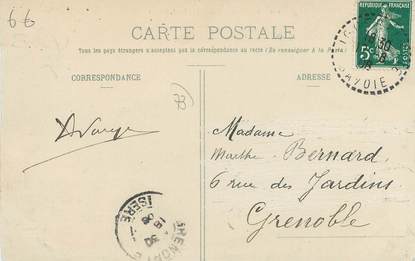 6€
CARTE POSTALE
Tous les pays étrangers n'acceptent pas la correspondance au recto (Se renseigner à la Poste)
CORRESPONDANCE
ADRESSE
REPUBLIQUE FRANÇAISE
5c
POSTES
SAVOIE
Madame
Marthe Bernard
6 rue des Jardins
Grenoble
GRENOBLE
ISERE